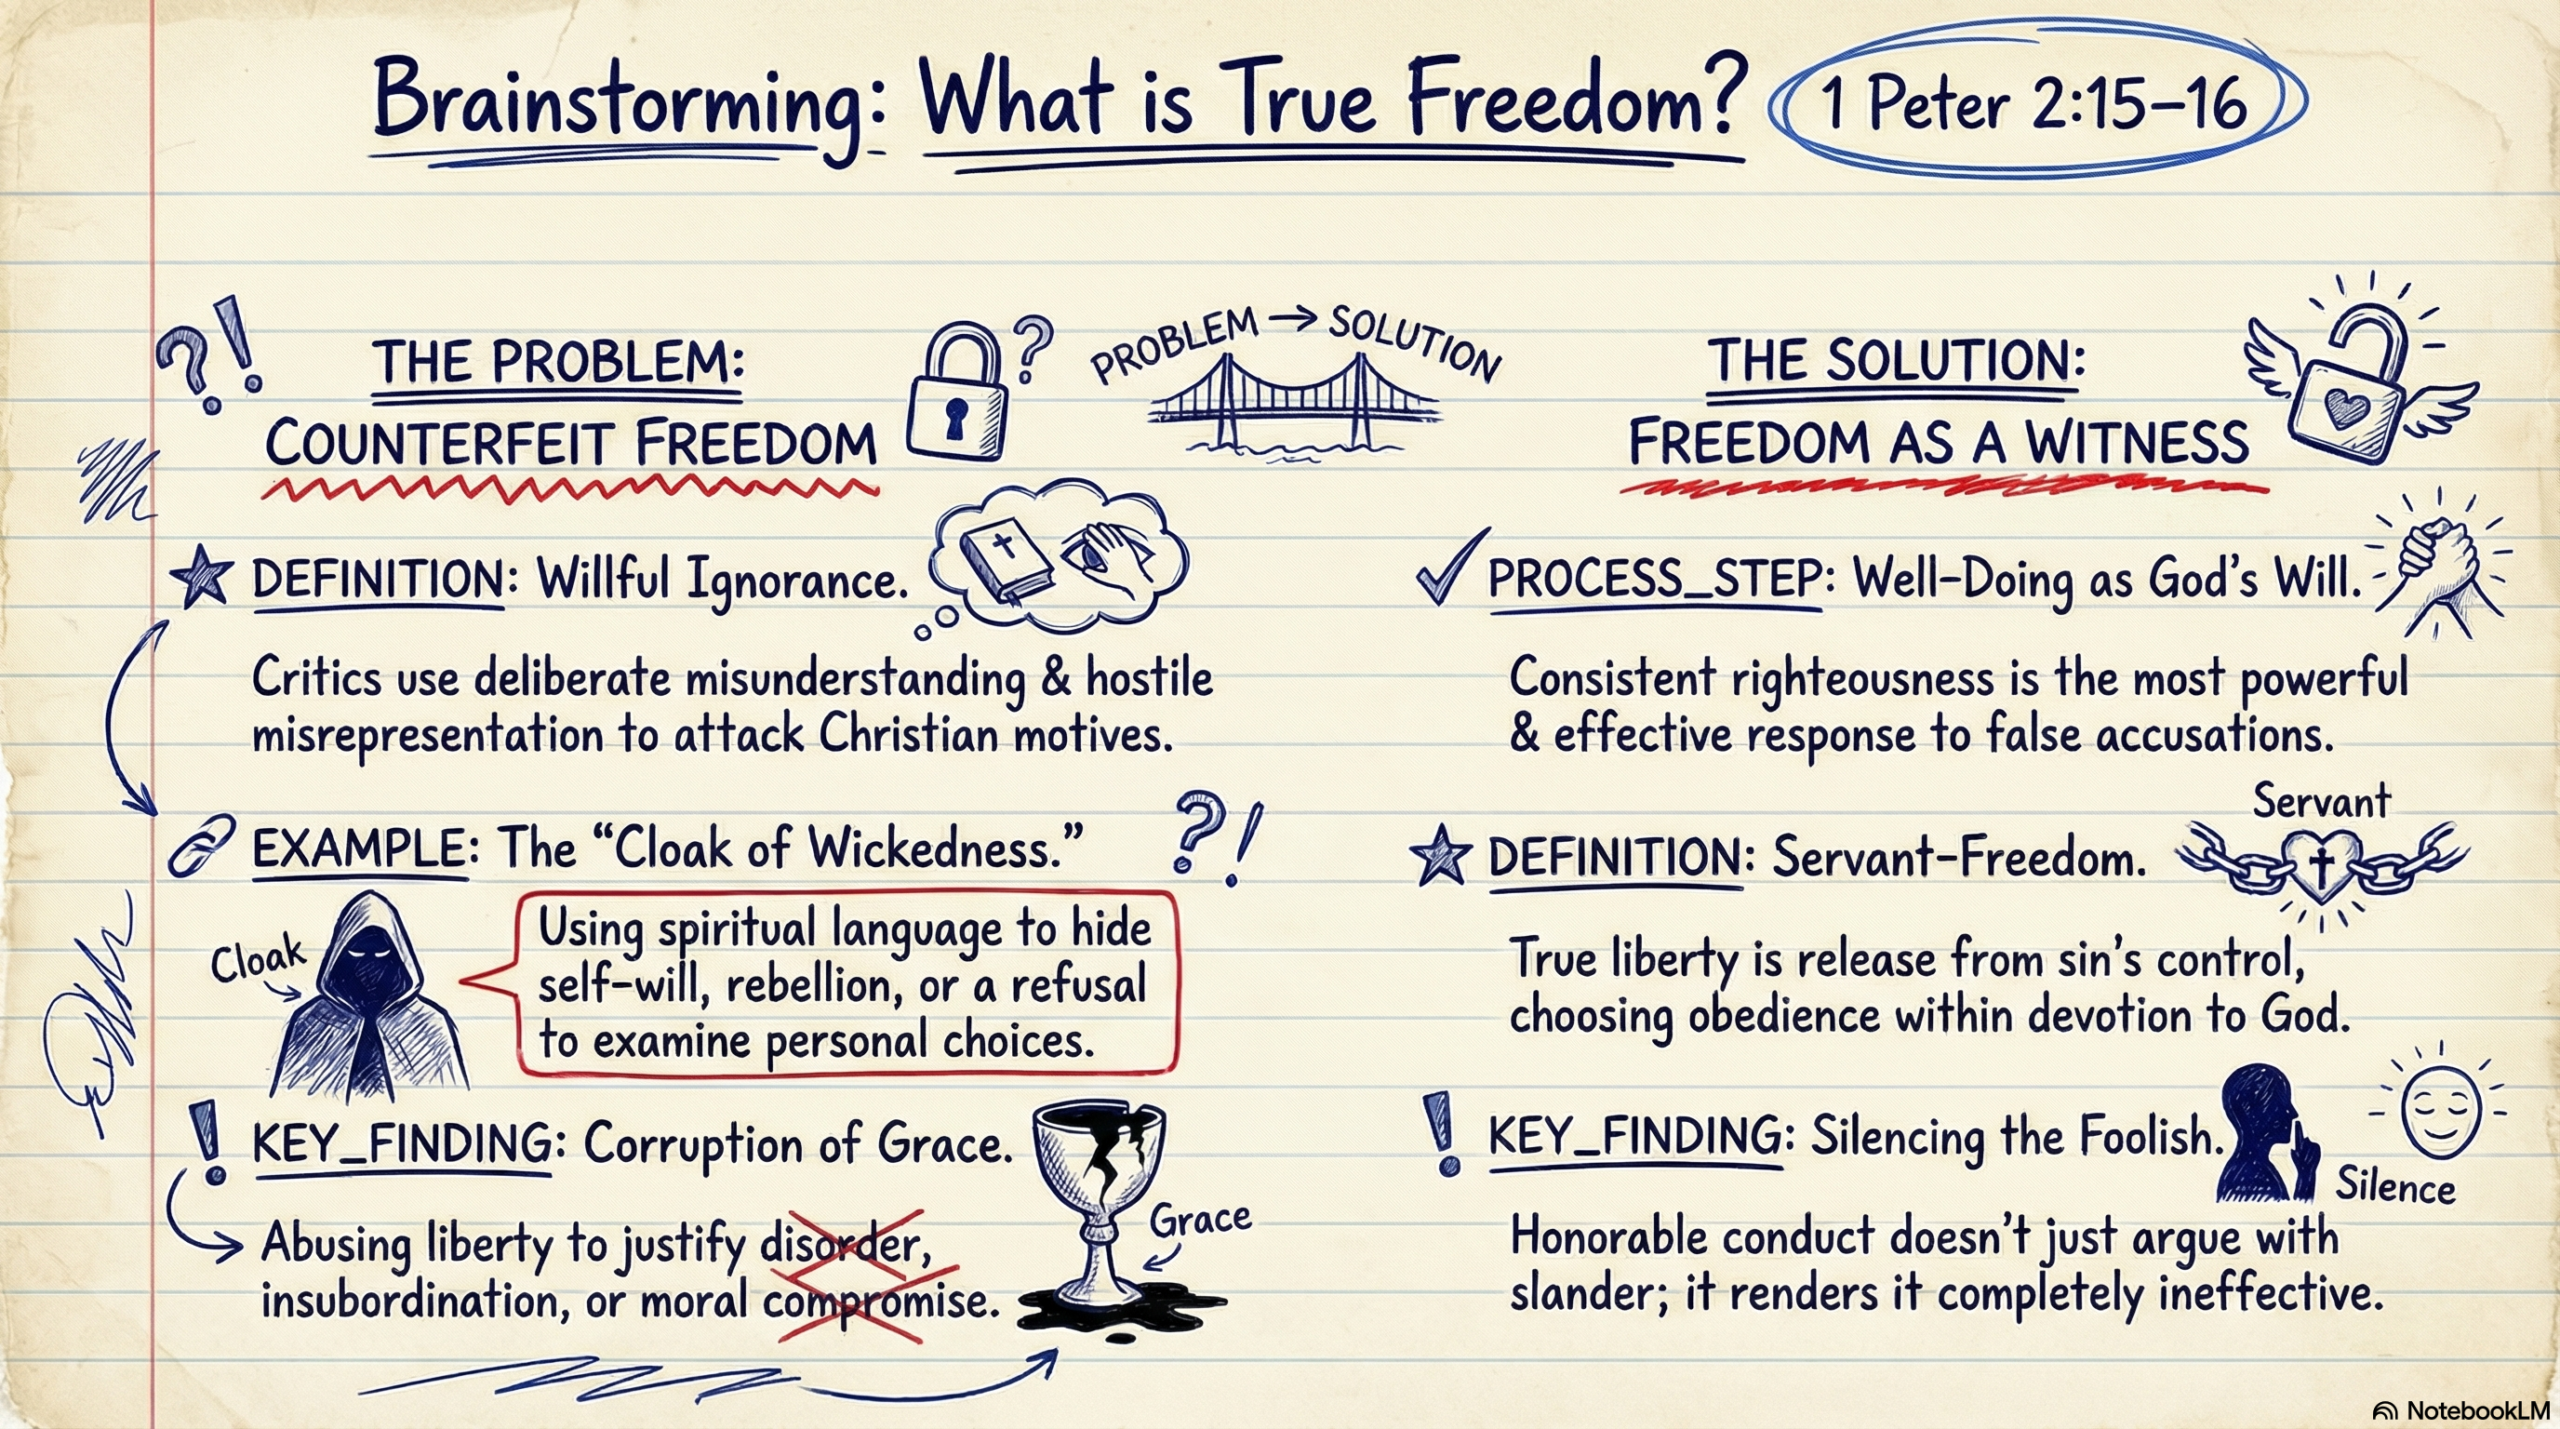 Brainstorming: What is True Freedom?
1 Peter 2:15–16
PROBLEM → SOLUTION
THE PROBLEM:
COUNTERFEIT FREEDOM
DEFINITION: Willful Ignorance.
Critics use deliberate misunderstanding & hostile
misrepresentation to attack Christian motives.
EXAMPLE: The “Cloak of Wickedness.”
Cloak
Using spiritual language to hide
self-will, rebellion, or a refusal
to examine personal choices.
KEY_FINDING: Corruption of Grace.
Grace
Abusing liberty to justify disorder,
insubordination, or moral compromise.
THE SOLUTION:
FREEDOM AS A WITNESS
PROCESS_STEP: Well-Doing as God’s Will.
Consistent righteousness is the most powerful
& effective response to false accusations.
Servant
DEFINITION: Servant-Freedom.
True liberty is release from sin’s control,
choosing obedience within devotion to God.
KEY_FINDING: Silencing the Foolish.
Silence
Honorable conduct doesn’t just argue with
slander; it renders it completely ineffective.
NotebookLM